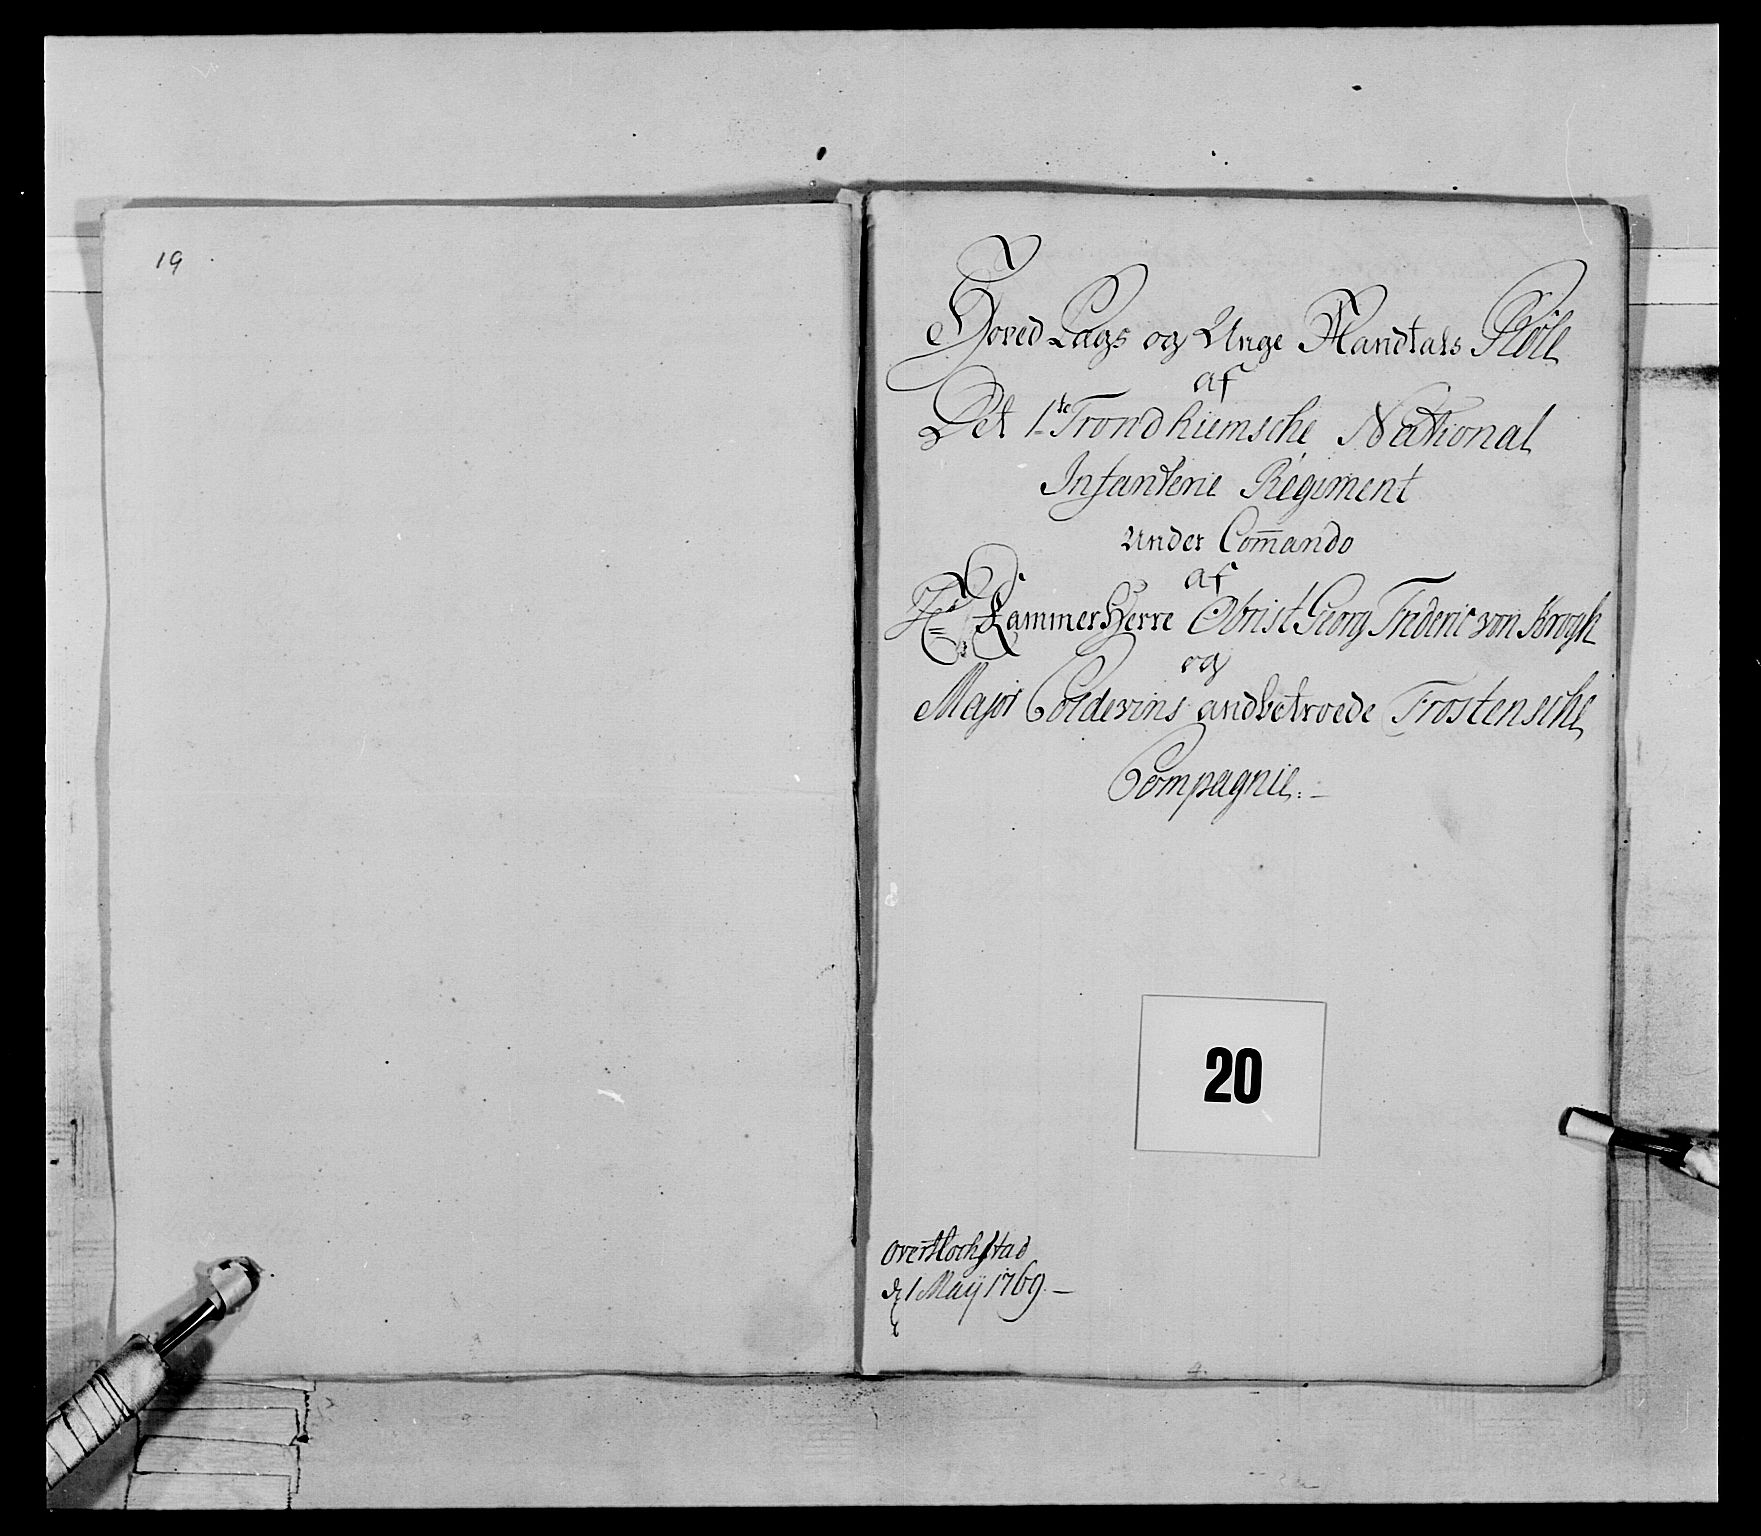 19
Hoved Lags og Unge Mandtals Rolle
af
Det 1te Trondhiemsche National
Infanterie Regiment
Under Com̄ando
af
Hr Kammer Herre Obrist Georg Frederic von Krogh
og
Major Coldevins andbetroede Frostensche
Compagnie.:–
20
Over
d 1 Maÿ 1769.–